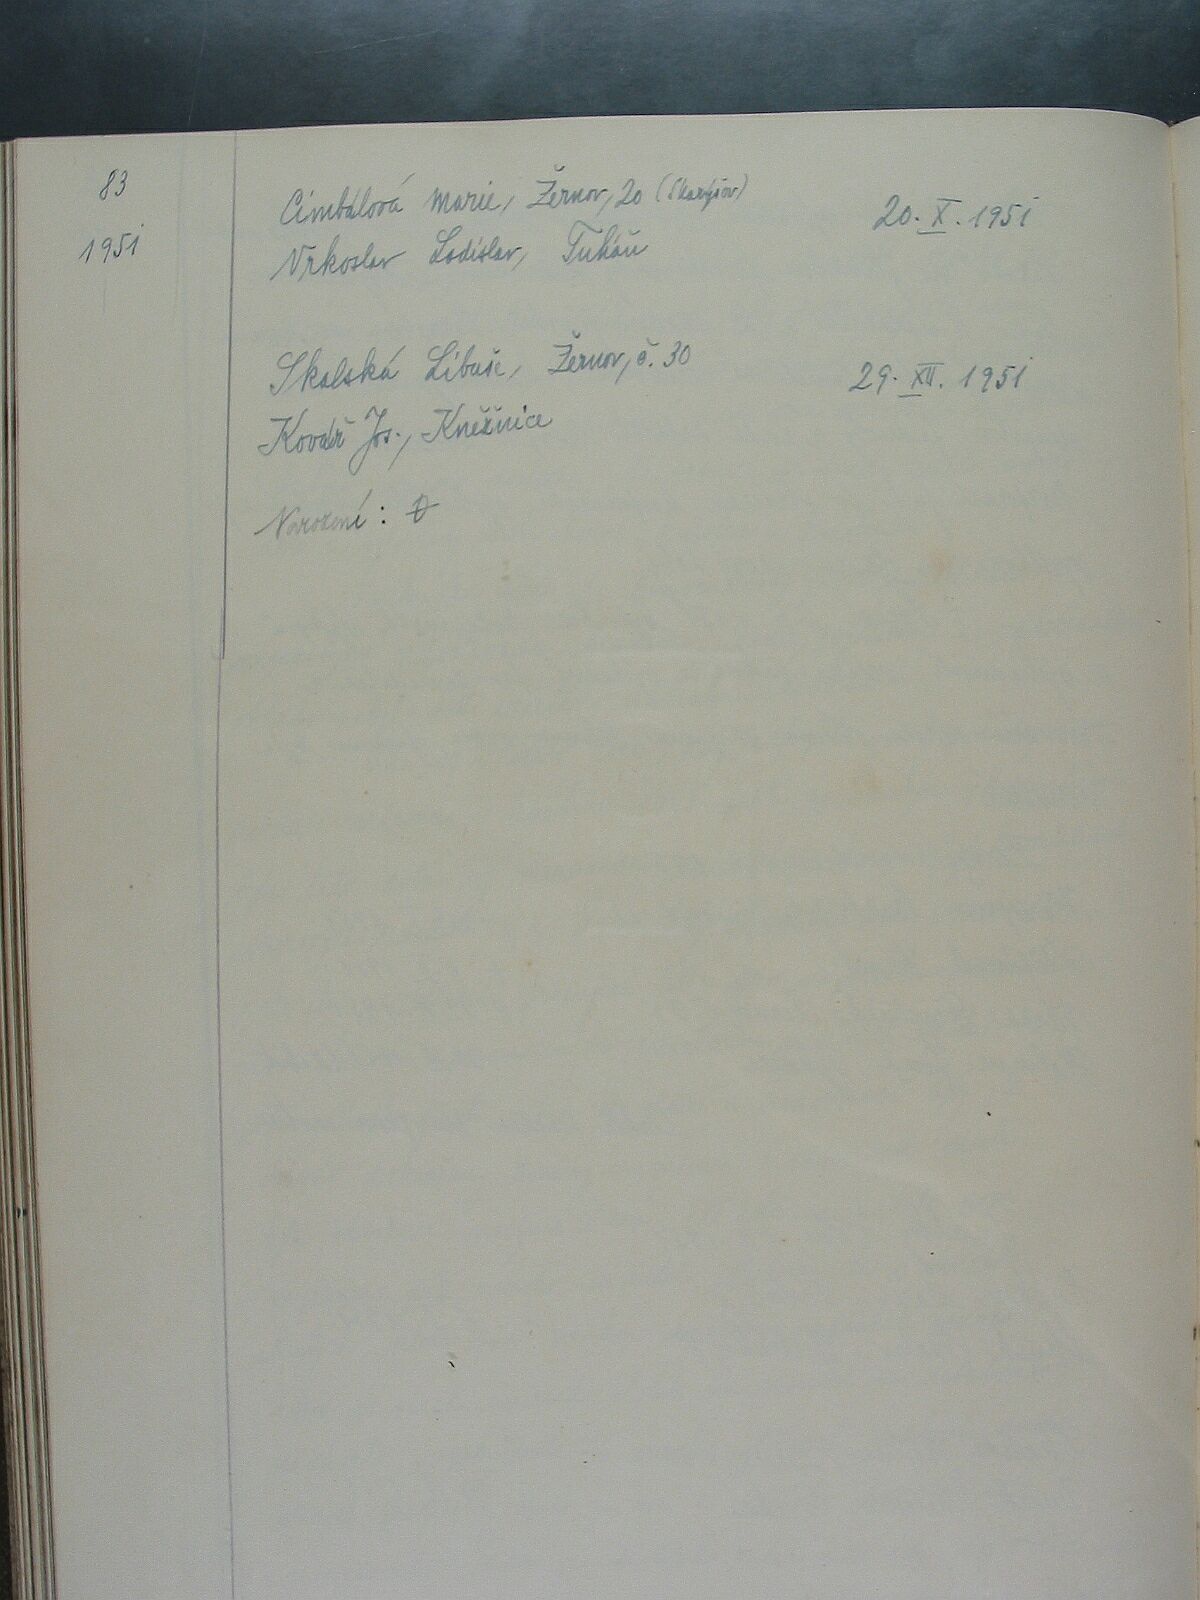 83
1951
Cimbálová Marie, Žernov, 20 (Skaryšov) 20. X. 1951
Vrkoslav Ladislav, Tuháň
Skalská Libuše, Žernov, č. 30 29. XII. 1951
Kovář Jos., Kněžnice
Narození: 0